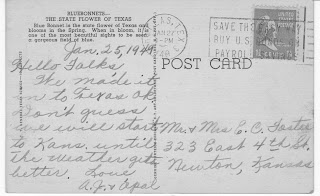 BLUEBONNETS—
THE STATE FLOWER OF TEXAS
Blue Bonnet is the state flower of Texas and
blooms in the Spring. When in bloom, it is
one of the most beautiful sights to be seen
a gorgeous field of blue.
Jan. 25, 1949
Hello Folks
We made it
on to Texas Ok
Don't guess
we will start
to Kans. until
the weather gets
better. Love
A.J. & Opal
TEXAS
JAN 27
PM
1949
SAVE
BUY U.S.
PAYROLL
POST CARD
Mr & Mrs E.C.
323 East 4th St.
Newton, Kansas